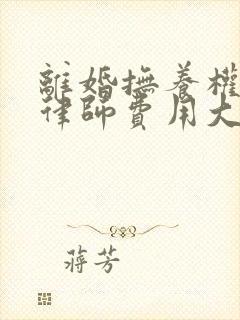 離婚撫養權
律師費用大
蔣芳